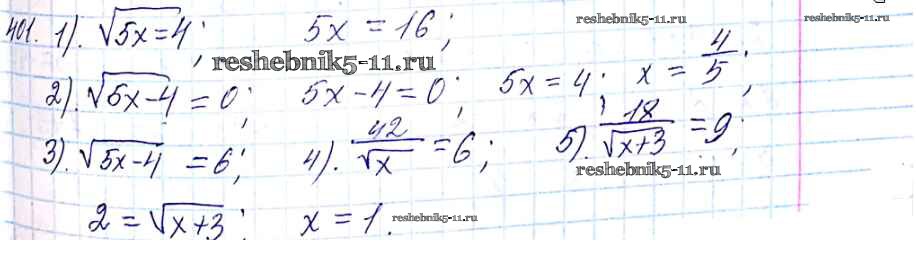 401. 1). √5x=4; 5x = 16; reshebnik5-11.ru reshebnik5-11.ru
reshebnik5-11.ru
2). √5x-4 = 0; 5x-4=0; 5x = 4; x = 4/5;
3). √5x-4 = 6; 4). 42/√x = 6; 5). 18/√x+3 = 9;
reshebnik5-11.ru
2 = √x+3; x = 1. reshebnik5-11.ru